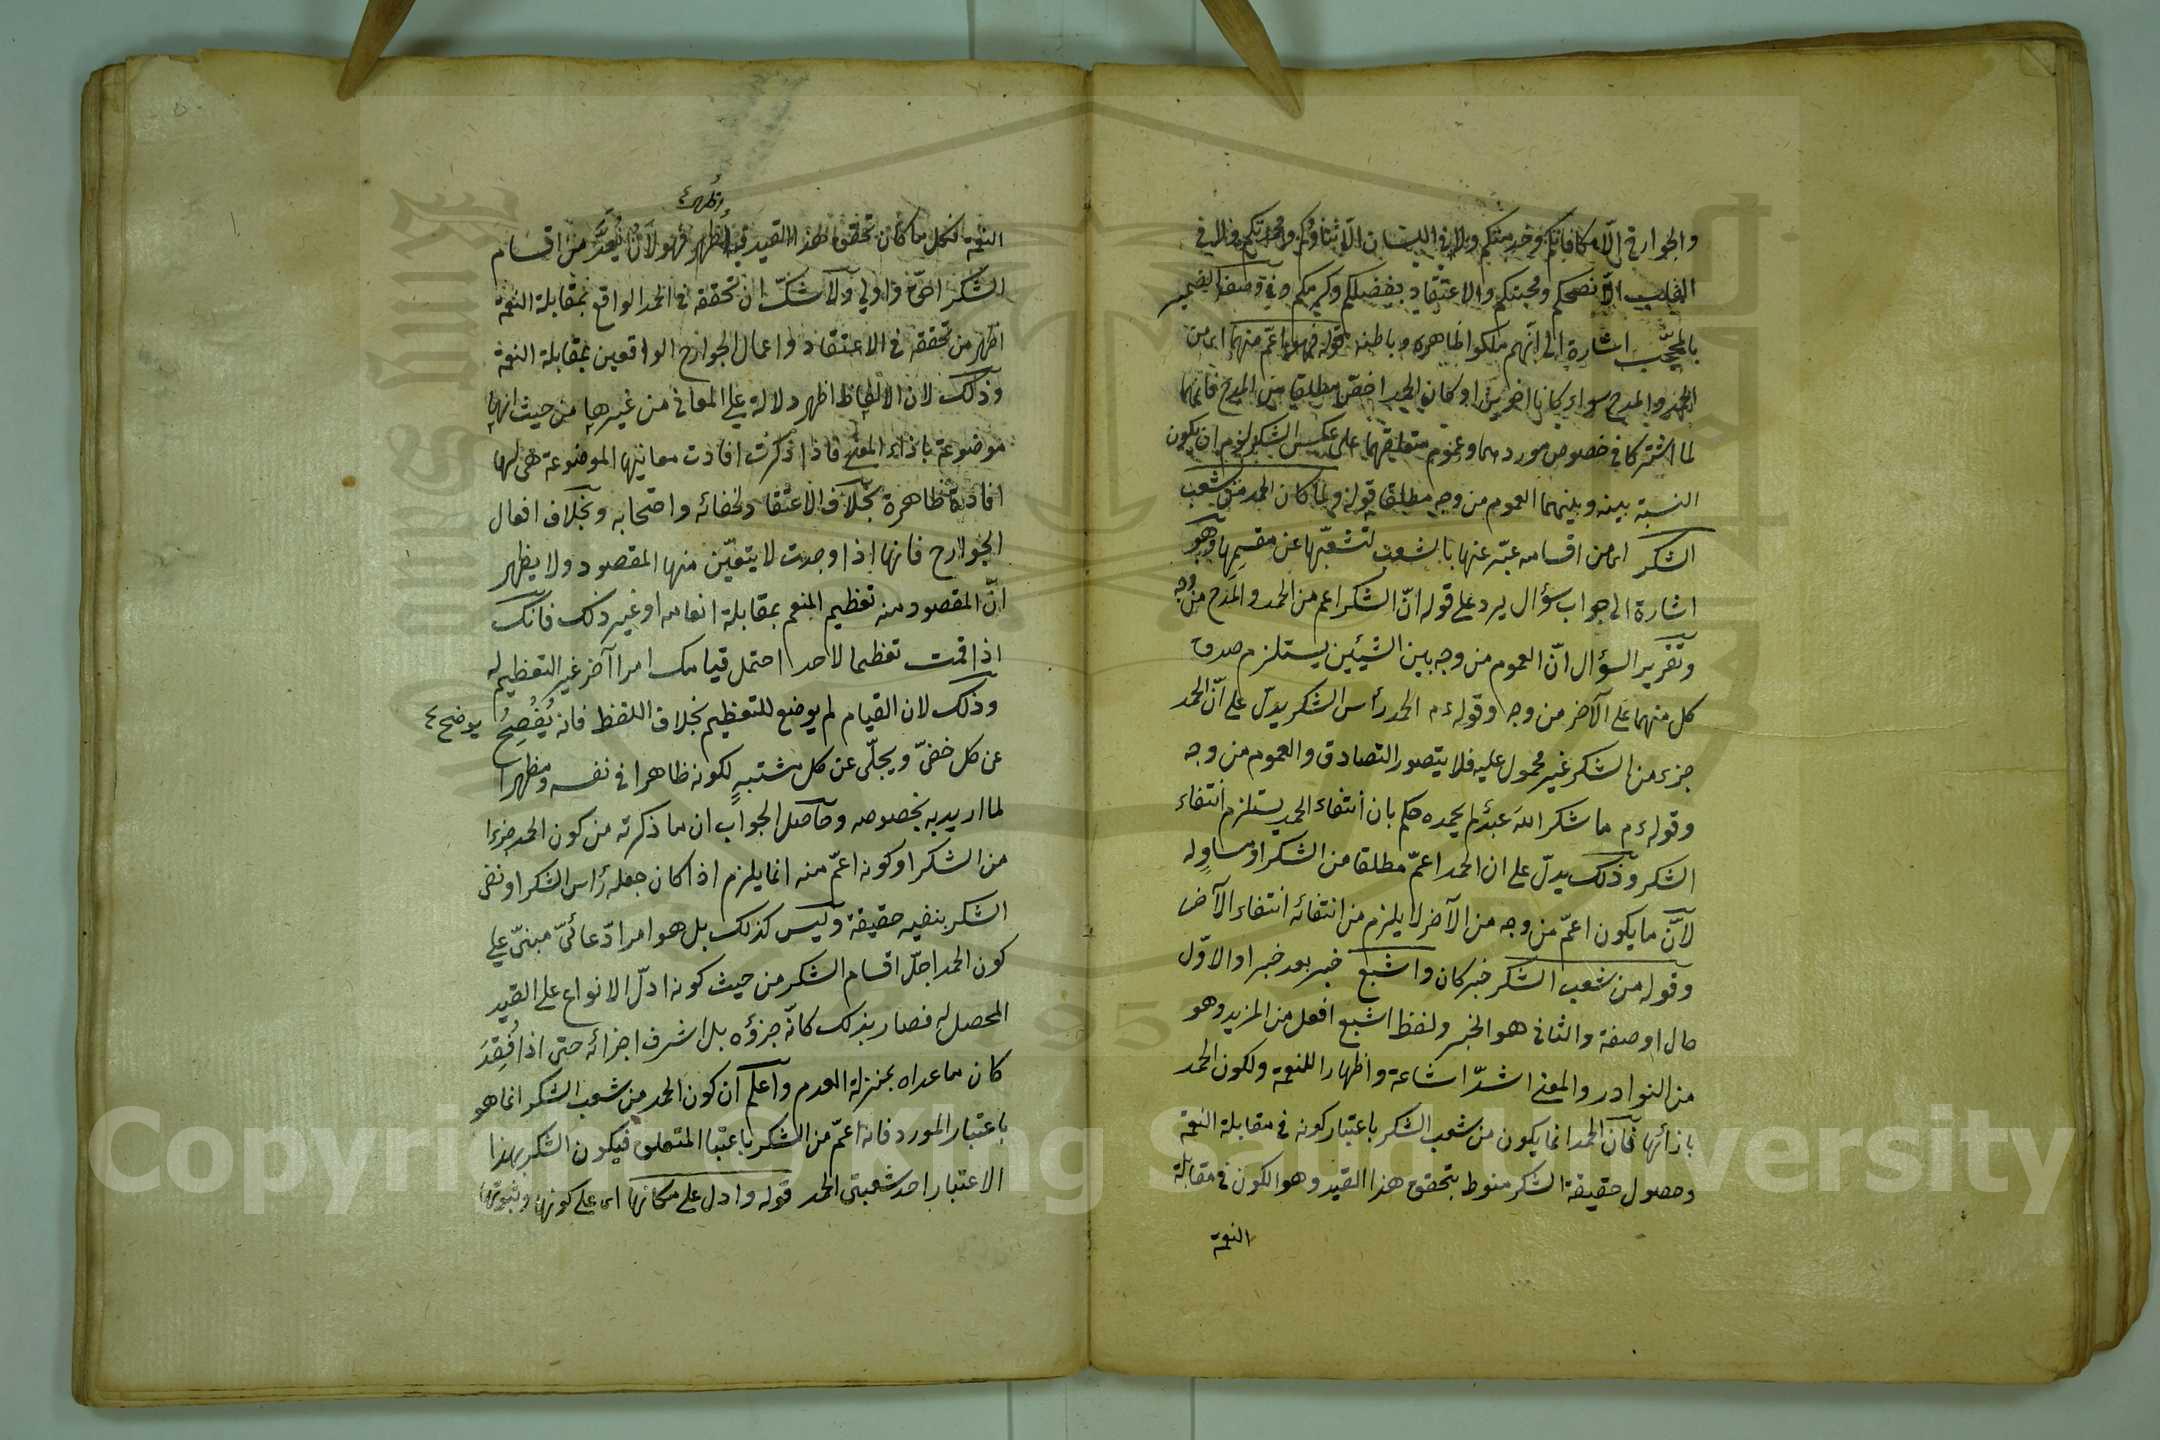 والجوارح الا مكافاتكم وخدمتكم ولا في اللسان الا ثناؤكم ومحمدتكم ولا في
القلب الا نصحكم ومحبتكم والاعتقاد بفضلكم وكرمكم وفي وصف الضمير
بالمحجب اشارة الى انهم ملكوا ظاهره وباطنه قوله فهو اعم منهما اى من
الحمد والمدح سواء كانا اخوين او كان الحمد اخص مطلقا من المدح فانهما
لما اشتركا في خصوص موردهما وعموم متعلقهما على عكس الشكر لزم ان يكون
النسبة بينه وبينهما العموم من وجه مطلقا قوله ولما كان الحمد من شعب
الشكر اى من اقسامه عبّر عنها بالشعب لتشعّبها عن مقسمها وهو
اشارة الى جواب سؤال يرد على قوله انّ الشكر اعم من الحمد والمدح من وجه
وتقرير السؤال انّ العموم من وجه بين الشيئين يستلزم صدق
كل منهما على الآخر من وجه وقوله ءم الحمد رأس الشكر يدلّ على انّ الحمد
جزء من الشكر غير محمول عليه فلا يتصور التصادق والعموم من وجه
وقوله ءم ما شكر اللهَ عبدٌ لم يحمده حكم بان انتفاء الحمد يستلزم انتفاء
الشكر وذلك يدلّ على ان الحمد اعمّ مطلقا من الشكر او مساوٍ له
لانّ ما يكون اعمّ من وجه من الآخر لا يلزم من انتفائه انتفاء الآخر
وقوله من شعب الشكر خبر كان واشيع خبر بعد خبر او الاوّل
حال او صفة والثانى هو الخبر ولفظ اشيع افعل من المزيد وهو
من النوادر والمعنى اشدّ اشاعة واظهارا للنعمة ولكون الحمد
بازائها فان الحمد انما يكون من شعب الشكر باعتبار كونه في مقابلة النعمة
وحصول حقيقة الشكر منوط بتحقق هذا القيد وهو الكون في مقابلة
النعمة
واظهر
النعمة فكل ما كان تحقق لهذا القيد فيه اظهر فهو لان يُعدَّ من اقسام
الشكر احق واولى ولا شكّ ان تحققه في الحمد الواقع بمقابلة النعمة
اظهر من تحققه في الاعتقاد واعمال الجوارح الواقعين بمقابلة النعمة
وذلك لان الالفاظ اظهر دلالة على المعانى من غيرها من حيث انها
موضوعة باذاء المعنى فاذا ذكرت افادت معانيها الموضوعة هى لها
افادة ظاهرة بخلاف الاعتقاد لخفائه واحتجابه وبخلاف افعال
الجوارح فانها اذا وجدت لا يتعيّن منها المقصود ولا يظهر
انّ المقصود منه تعظيم المنعم بمقابلة انعامه او غير ذلك فانك
اذا قمت تعظيما لاحد احتمل قيامك امرا آخر غير التعظيم له
وذلك لان القيام لم يوضع للتعظيم بخلاف اللفظ فانه يُفْصِحُ
يوضح
عن كل خفىّ ويجلّى عن كل مشتبهٍ لكونه ظاهرا في نفسه ومظهرا
لما اريد به بخصوصه وحاصل الجواب ان ما ذكرته من كون الحمد جزءا
من الشكر او كونه اعمّ منه انما يلزم اذا كان جعله رأس الشكر او نفى
الشكر بنفيه حقيقة وليس كذلك بل هو امر ادّعائىّ مبنىّ على
كون الحمد اجلّ اقسام الشكر من حيث كونه ادلّ الانواع على القيد
المحصل له فصار بذلك كانّه جزؤه بل اشرف اجزائه حتى اذا فُقِدَ
كان ما عداه بمنزلة العدم واعلم ان كون الحمد من شعب الشكر انما هو
باعتبار المورد فانه اعمّ من الشكر باعتبا المتعلق فيكون الشكر بهذا
الاعتبار احد شعبتى الحمد قوله وادل على مكانها اى على كونها وثبوتها
Copyright © King Saud University